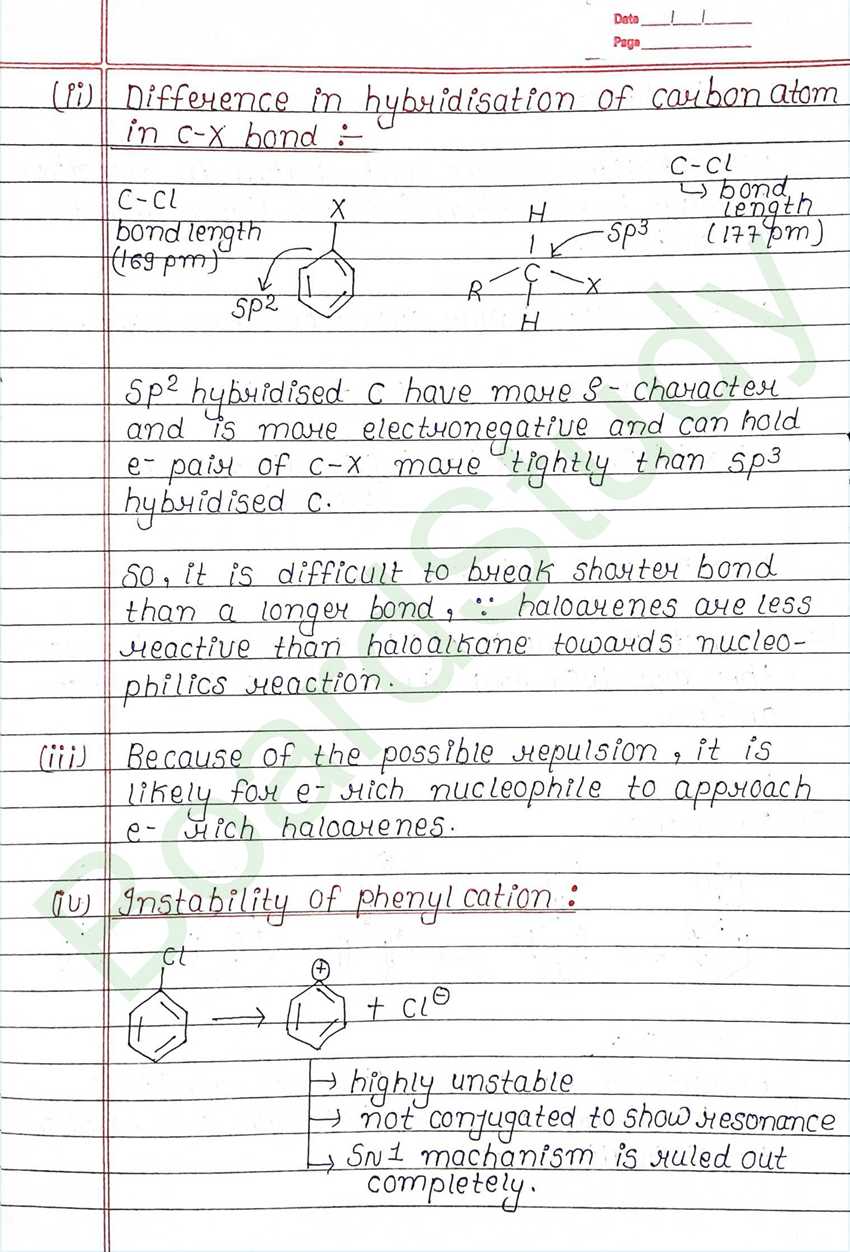 Date / /
Page
(ii) Difference in hybridisation of carbon atom
in C-X bond :-
C-Cl
bond length
(169 pm)
X
SP2
H
C
R
X
H
SP3
C-Cl
↳ bond
length
(177 pm)
SP2 hybridised C have more S- character
and is more electronegative and can hold
e- pair of C-X more tightly than SP3
hybridised C.
So, it is difficult to break shorter bond
than a longer bond, ∵ haloarenes are less
reactive than haloalkane towards nucleo-
philics reaction.
(iii) Because of the possible repulsion, it is
likely for e- rich nucleophile to approach
e- rich haloarenes.
(iv) Instability of phenyl cation :
Cl
→ ⊕ + Cl⊖
→ highly unstable
→ not conjugated to show resonance
↳ SN1 machanism is ruled out
completely.
BoardStudy